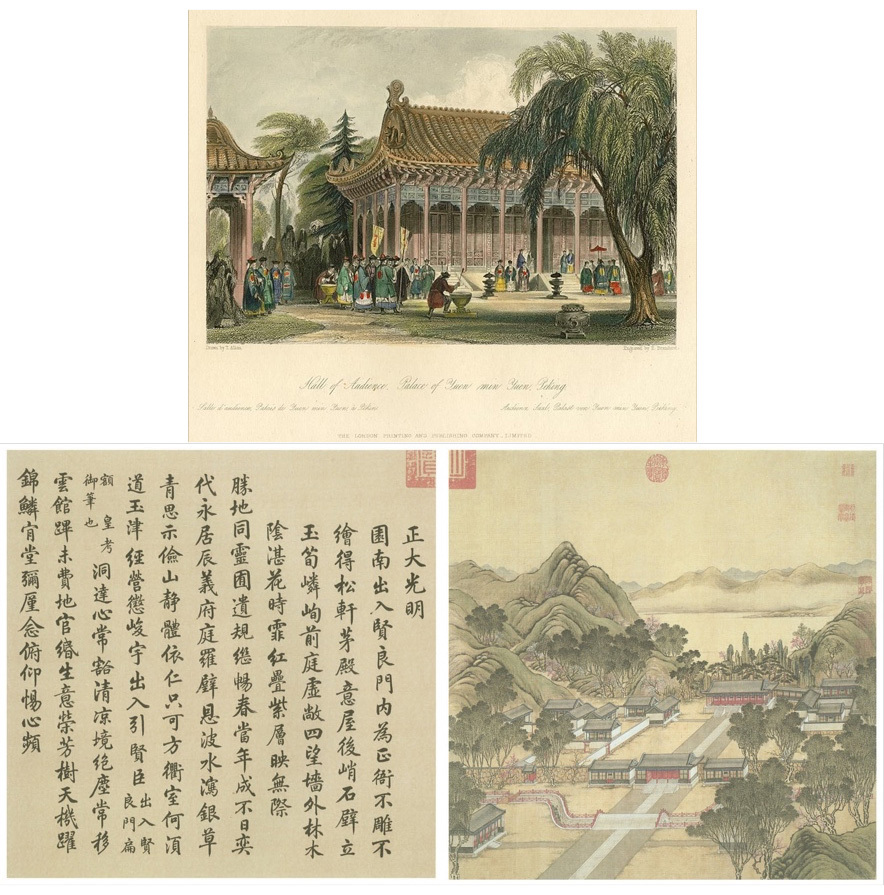 Drawn by T. Allom.
Hall of Audience, Palace of Yuen min Yuen, Peking.
THE LONDON PRINTING AND PUBLISHING COMPANY, LIMITED
正大光明
園南出入賢良門內為正衙不雕不
繪得松軒茅殿意屋後峭石壁立
玉筍嶙峋前庭虛敞四望墻外林木
陰湛花時霏紅疊紫層映無際
勝地同靈囿遺規繼暢春當年成不日奕
代永居辰義府庭羅壁恩波水瀉銀草
青思示儉山靜體依仁只可方衢室何須
道玉津經營懲峻宇出入引賢臣出入賢良門扁
額皇考御筆也洞達心常豁清涼境絕塵常移
雲館蹕未費地官緡生意榮芳樹天機躍
錦鱗肯堂彌厪念俯仰惕心頻